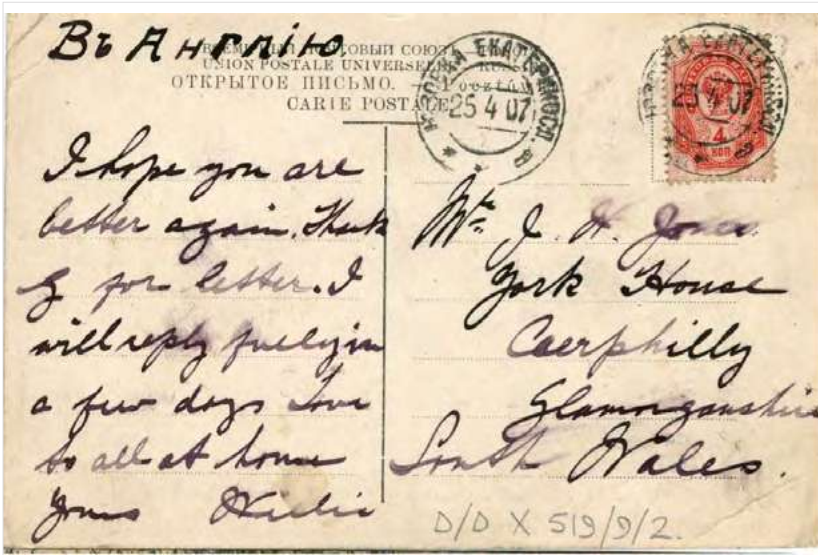 Въ Англію
ВСЕМІРНЫЙ ПОЧТОВЫЙ СОЮЗЪ.
UNION POSTALE UNIVERSELLE.
ОТКРЫТОЕ ПИСЬМО.
CARTE POSTALE
ЮЗОВКА ЕКАТЕРИНОСЛ.
25 4 07
ЮЗОВКА ЕКАТЕРИНОСЛ.
25 4 07
4
КОП
I hope you are
better again. Thank
for letter. I
will reply fully in
a few days Love
to all at home
Yours Willie
Mr. J. H. Jones
York House
Caerphilly
Glamorganshire
South Wales.
D/D X 519/9/2.